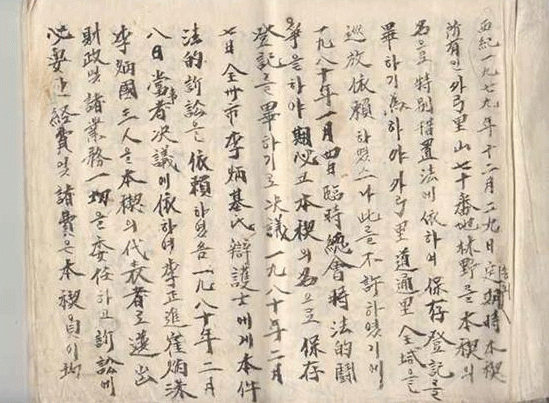 西紀一九七九年十二月二九日定期總會時本稧
所有인 外弓里山七十番地林野를 本稧의
名으로 特別措置法에 依하여 保存登記를
畢하기 爲하야 外弓里 道通里 全域을
巡放依賴하였으나 此를 不許하였기에
一九八十年一月四日 臨時總會時 法的鬪
爭을 하야 期必고 本稧의 名으로 保存
登記를 畢하기로 決議 一九八十年二月
七日 全州市 李炳基氏 辯護士에게 本件
法的 訴訟을 依賴하였음 一九八十年二月
八日 當事者 決議에 依하여 李正進 崔炳洙
李炳國 三人을 本稧의 代表者로 選出
財政및 諸業務 一切을 委任하고 訴訟에
必要한 経費및 諸費은 本稧員이